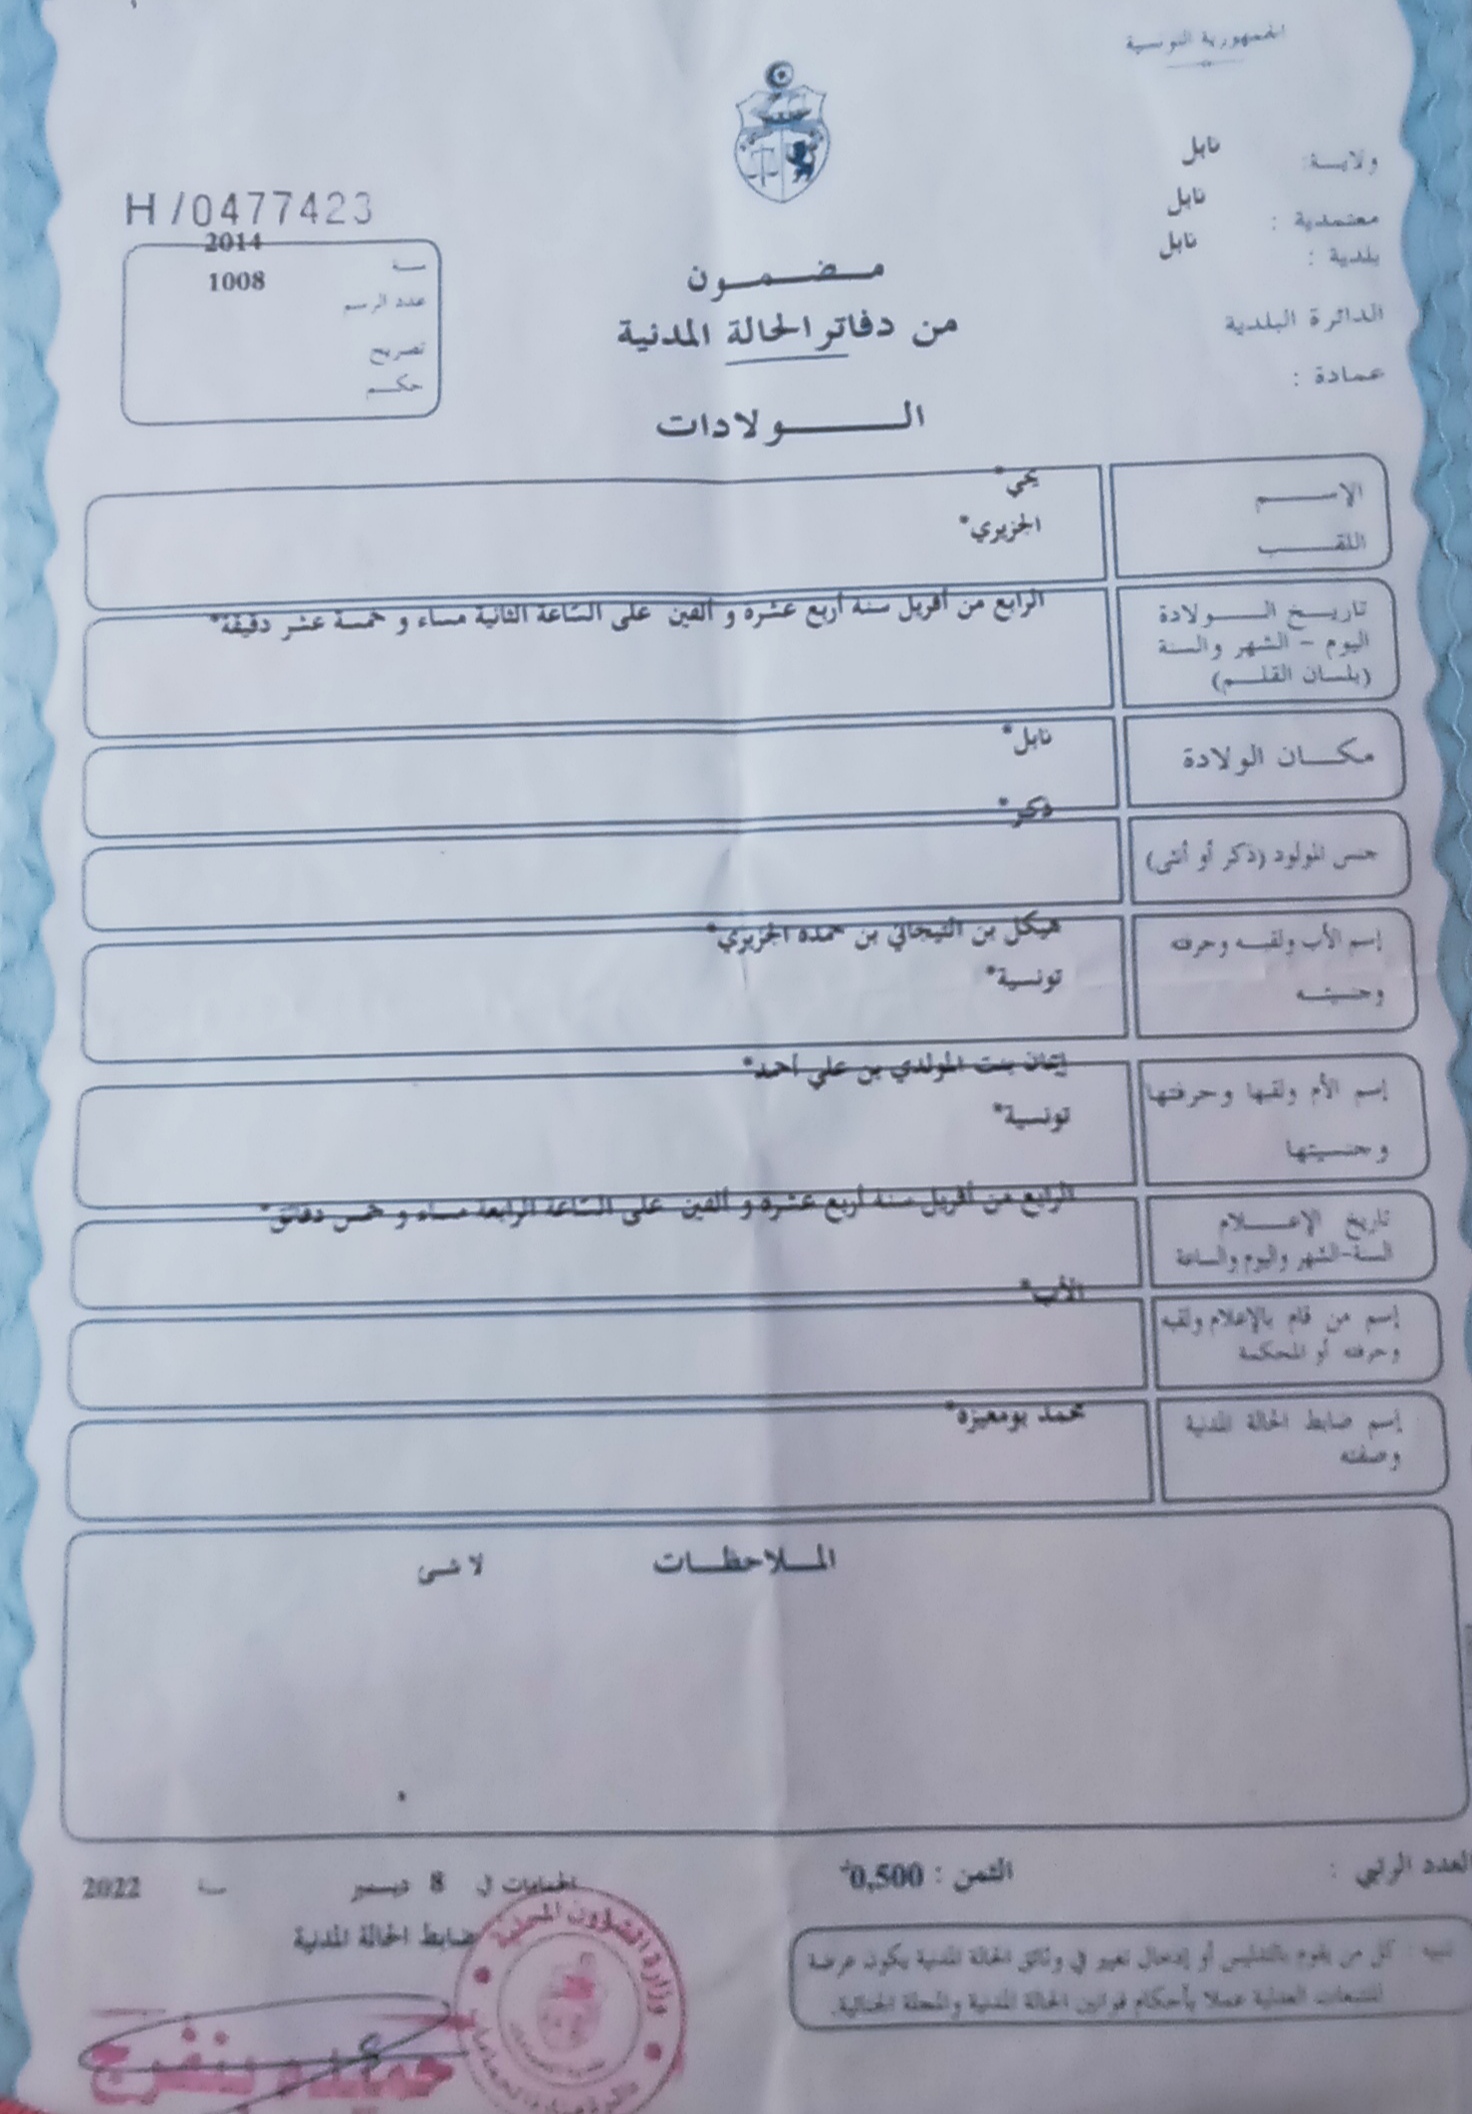 الجمهورية التونسية
ولايـة: نابل
معتمدية : نابل
بلدية : نابل
الدائرة البلدية
عمادة :
H/0477423
سنة 2014
عدد الرسم 1008
تصريح
حكم
مضمون
من دفاتر الحالة المدنية
الولادات
الإسم يحي*
اللقب الجزيري*
تاريخ الولادة
اليوم - الشهر والسنة
(بلسان القلم)
الرابع من أفريل سنة أربع عشرة و ألفين على الساعة الثانية مساء و خمسة عشر دقيقة*
مكان الولادة نابل*
جنس المولود (ذكر أو أنثى) ذكر*
إسم الأب ولقبه وحرفته هيكل بن التيجاني بن حمده الجزيري*
وجنسيته تونسية*
إسم الأم ولقبها وحرفتها بنت المولدي بن علي أحمد*
وجنسيتها تونسية*
تاريخ الإعلام
السنة-الشهر واليوم والساعة
الرابع من أفريل سنة أربع عشرة و ألفين على الساعة الرابعة مساء و خمس دقائق*
إسم من قام بالإعلام ولقبه
وحرفته أو المحكمة
الأب*
إسم ضابط الحالة المدنية
وصفته
محمد بومعيزة*
الملاحظات لا شئ
العدد الرتبي :
الثمن : 0,500
الحمامات في 8 ديسمبر سنة 2022
ضابط الحالة المدنية
تنبيه : كل من يقوم بالتدليس أو إدخال تغيير في وثائق الحالة المدنية يكون عرضة
للتتبعات العدلية عملا بأحكام قوانين الحالة المدنية والمجلة الجنائية.
وزارة الشؤون المحلية